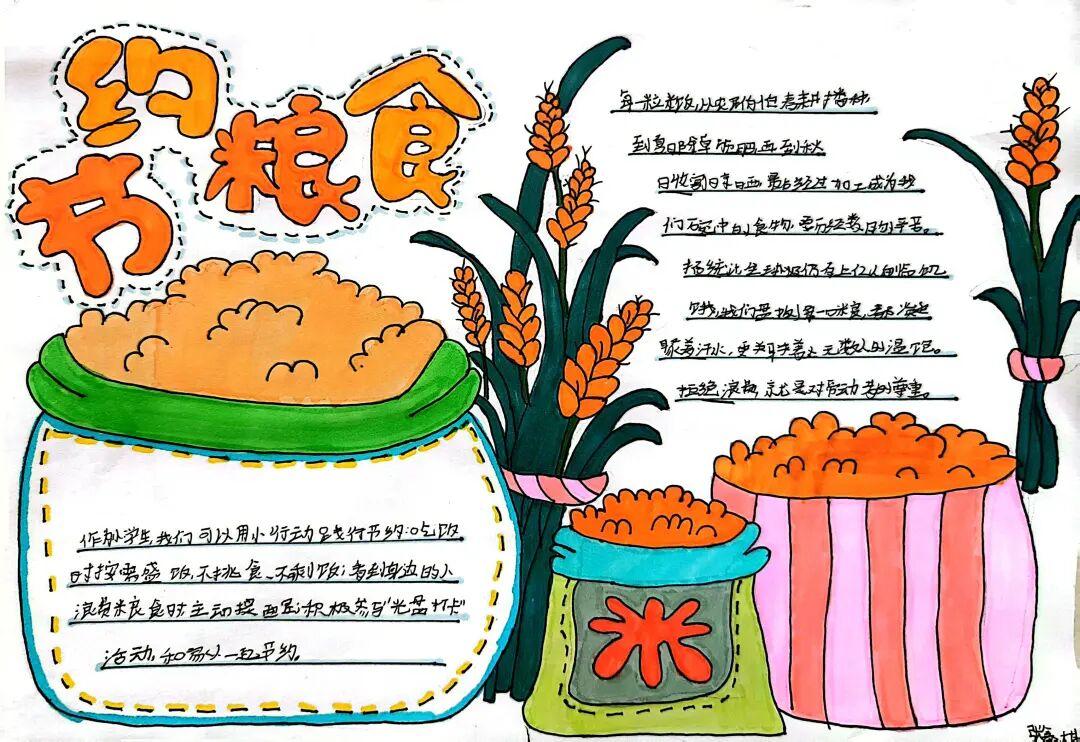 节约粮食
每一粒米饭，从农民伯伯春耕播种
到夏日除草施肥再到秋
日收割晾晒 最后经过加工成为我
们碗中的食物，要历经数月的辛苦。
据统计全球仍有上亿人面临饥
饿，我们盘中每一口粮食，都凝
聚着汗水，更牵着无数人的温饱。
拒绝浪费，就是对劳动者的尊重。
作为学生，我们可以用小行动践行节约：吃饭
时按需盛饭，不挑食、不剩饭；看到身边的小
浪费粮食时主动提醒；积极参与“光盘打卡”
活动，和家人一起节约。
米